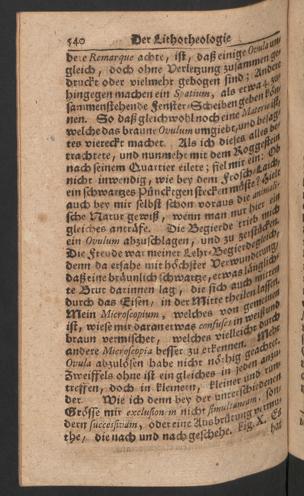 540 Der Lithotheologie
dere Remarque achte, ist, daß einige Ovula um
gleich, doch ohne Verletzung zusammen ge-
druckt oder vielmehr gebogen sind; Andere
hingegen machen ein Spatium, als etwa 4. zu-
sammenstehende Fenster-Scheiben geben kön-
nen. So daß gleichwohl noch eine Materie ist,
welche das braune Ovulum umgiebt, und besag-
tes viereckt machet. Als ich dieses alles be-
trachtete, und nunmehr mit dem Roggestein
nach seinem Quartier eilete; fiel mir ein: Ob
nicht inwendig, wie bey dem Frosch-Laich,
ein schwartzes Püncktgen stecken müste? Viele
auch bey mir selbst schon voraus die animali-
sche Natur gewiß, wenn man nur hier ein
gleiches anträfe. Die Begierde trieb mich
ein Ovulum abzuschlagen, und zu zerstücken.
Die Freude war meiner Lehr-Begierde gleich,
denn da ersahe mit höchster Verwunderung,
daß eine bräunlich schwartze, etwas länglich-
te Brut darinnen lag, die sich auch mitten
durch das Eisen, in der Mitte theilen lassen.
Mein Microscopium, welches von gemeinen
ist, wiese mir daran etwas confuses in weißund
braun vermischet, welches vielleicht durch
andere Microscopia besser zu erkennen. Mehr
Ovula abzulösen habe nicht nöthig geachtet.
Zweiffels ohne ist ein gleiches in jeden anzu-
treffen, doch in kleinern, kleiner und rum-
der. Wie ich denn bey der unterschiedenen
Grösse mir exclusionem nicht simultaneam, son-
dern successivam, oder eine Ausbrütung vermu-
the, die nach und nach geschehe. Fig. X. Es
hat